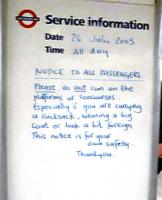 Service information
Date 26 July 2005
Time All day
NOTICE TO ALL PASSENGERS
Please do not run on the
platforms or concourses.
Especially if you are carrying
a rucksack, wearing a big
coat or look a bit foreign.
This notice is for your
own safety.
Thank you.